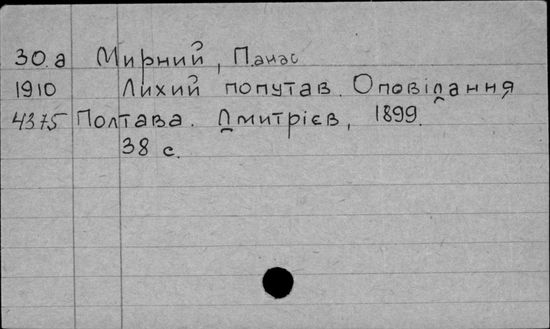 30.а Мирний, Панас
1910 Лихий попутав. Оповідання
4375 Полтава. Дмитрієв, 1899.
38 с.